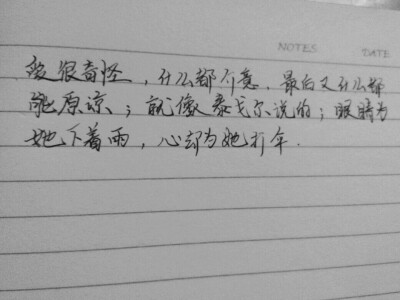 NOTES DATE
爱很奇怪，什么都介意，最后又什么都
能原谅；就像泰戈尔说的；眼睛为
她下着雨，心却为她打伞．